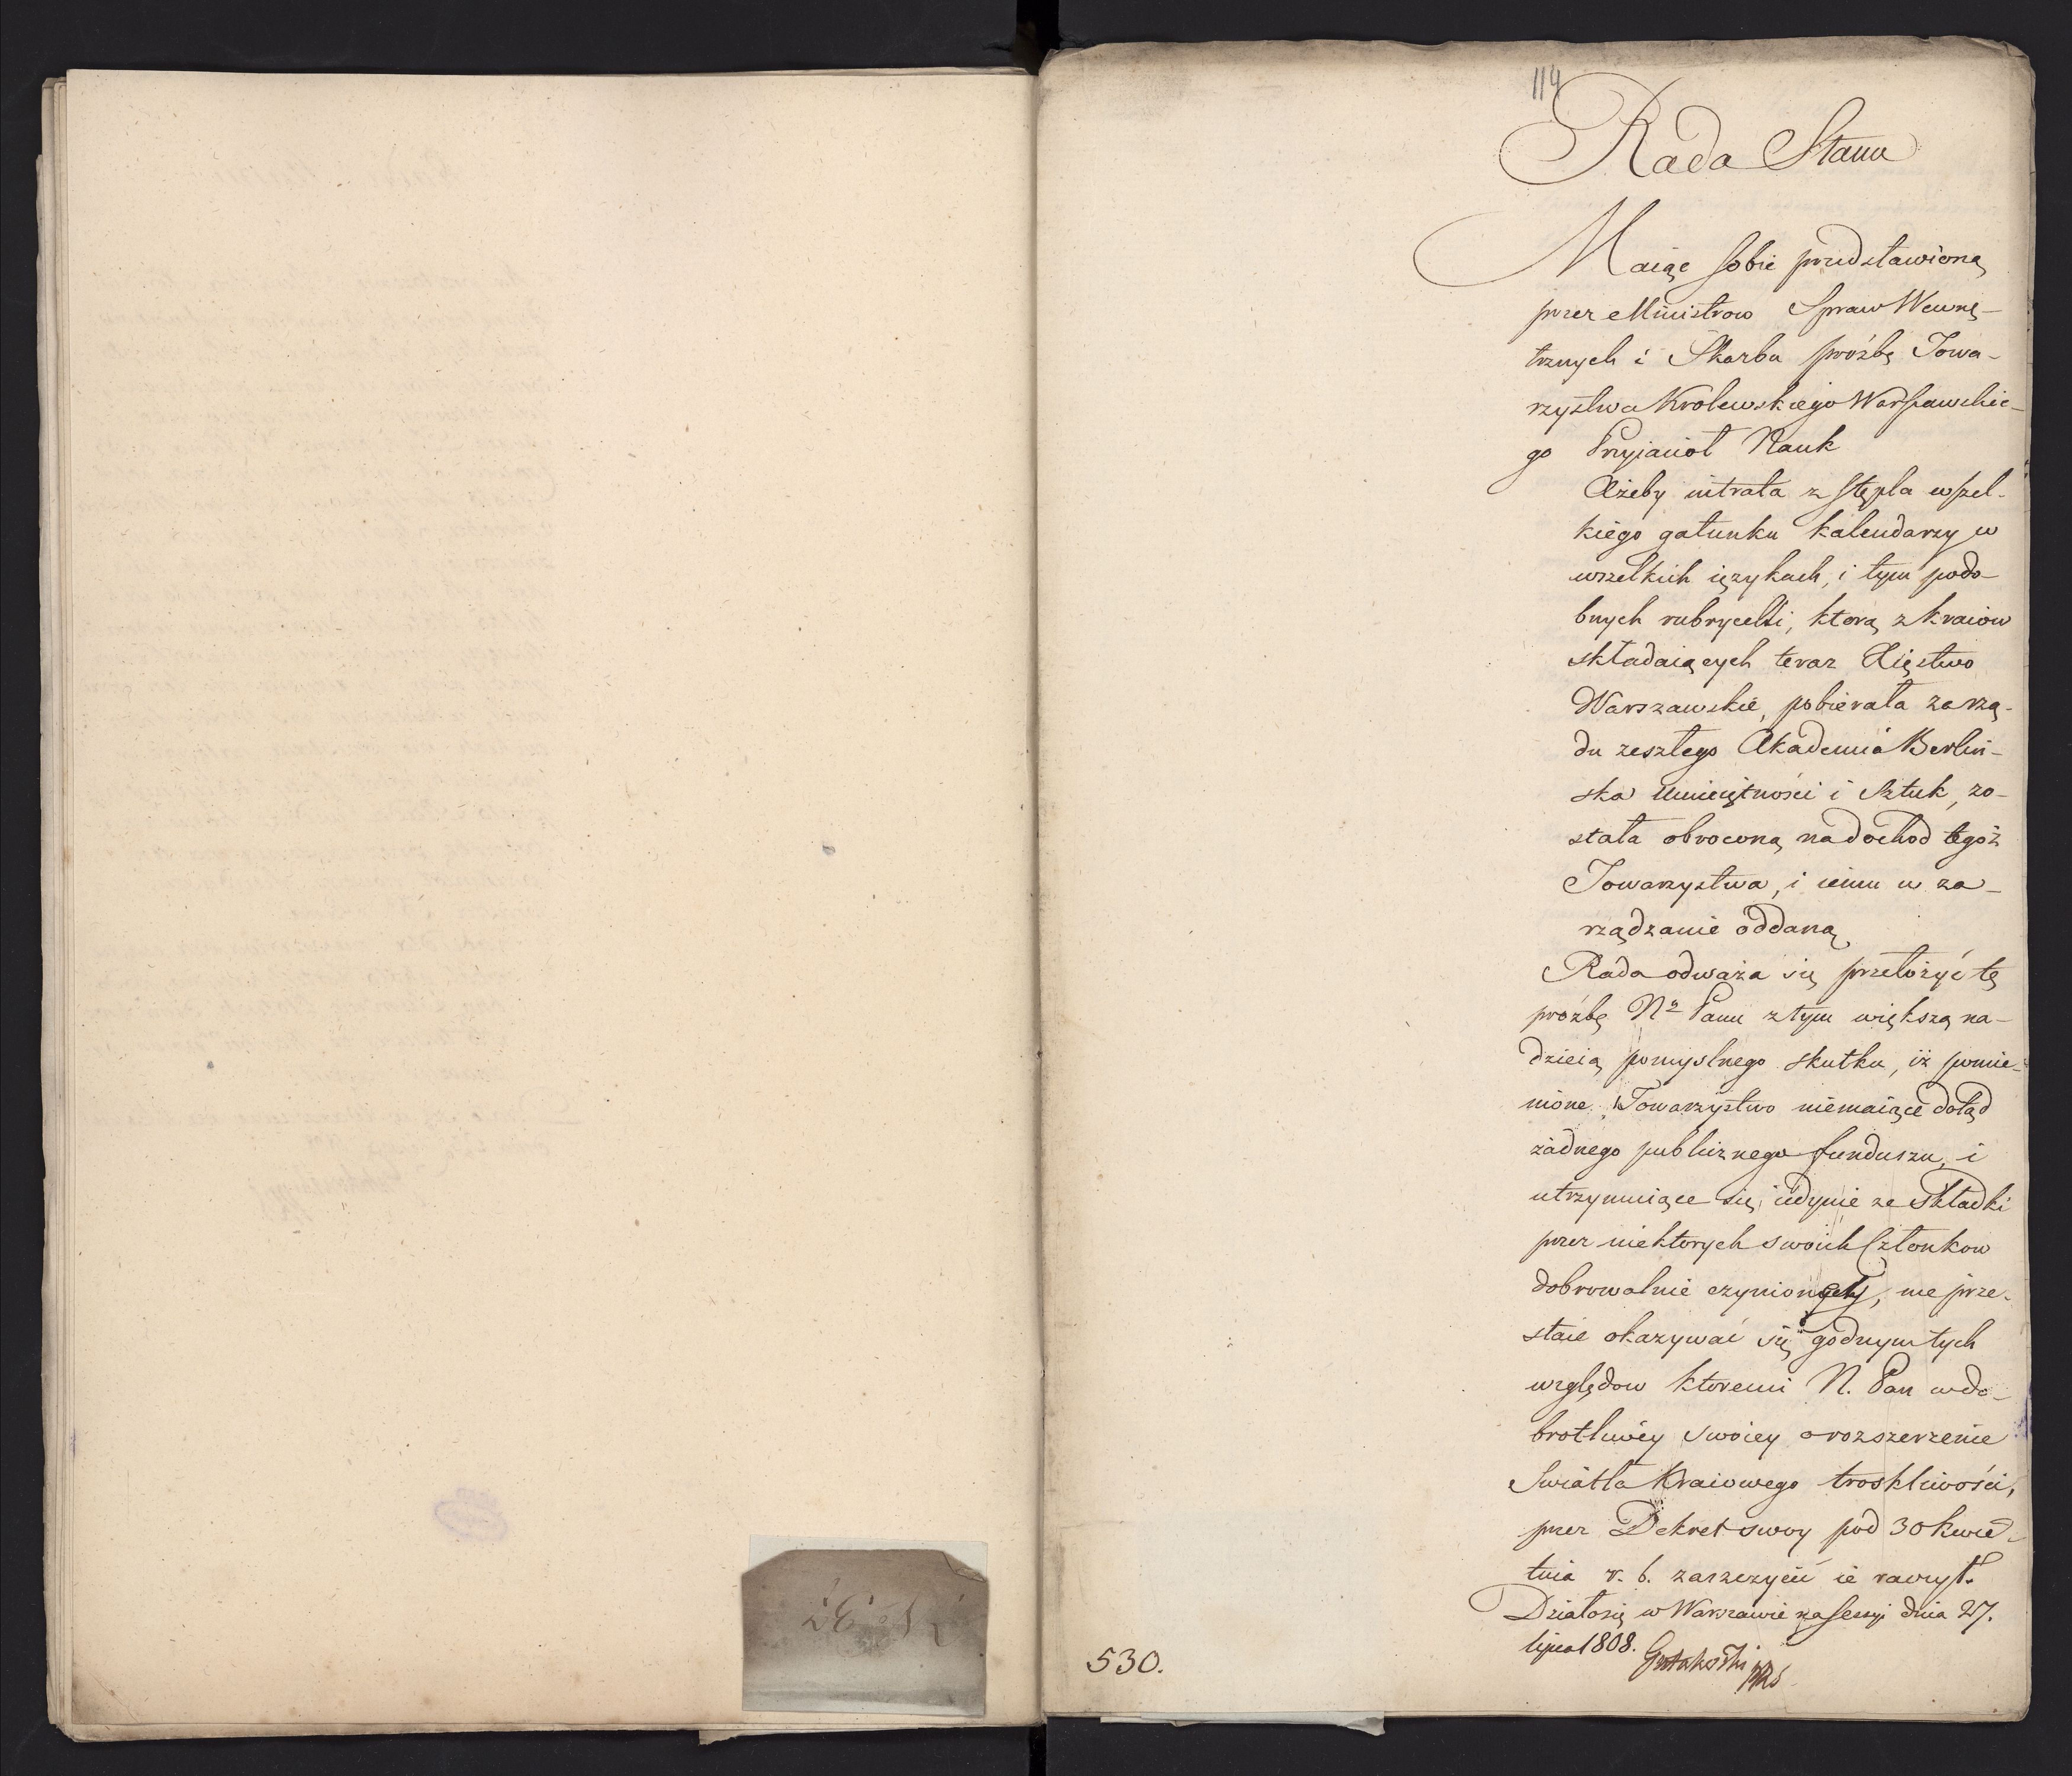 114
Rada Stanu
Maiąc sobie przedstawioną
przez Ministrow Spraw Wewnę-
trznych i Skarbu prośbę Towa-
rzystwa Krolewskiego Warszawskie-
go Przyiaciół Nauk
Ażeby intrata z stępla wszel-
kiego gatunku kalendarzy w
wszelkich ięzykach, i tym podo-
bnych rubrycelli, ktorą z kraiow
składaiących teraz Xięstwo
Warszawskie, pobierała za rzą-
du zeszłego Akademia Berliń-
ska Umieiętności i Sztuk, zo-
stała obroconą na dochod tegoż
Towarzystwa, i iemu w za-
rządzanie oddaną
Rada odważa się przełożyć tę
prozbę N° Panu z tym większą na-
dzieią pomyslnego skutku, iż pomie-
nione Towarzystwo niemaiące dotąd
żadnego publicznego funduszu, i
utrzymuiące się iedynie ze składki
przez niektorych swoich Członkow
dobrowolnie czynioney, nie prze-
staie okazywać się godnym tych
względow ktoremi N. Pan w do-
brotliwey swoiey o rozszerzenie
Swiatła Kraiowego troskliwości,
przez Dekret swoy pod 30 kwie-
tnia r. b. zaszczycić ie raczył.
Działo się w Warszawie na sessyi dnia 27.
lipca 1808. Gutakowski
530.